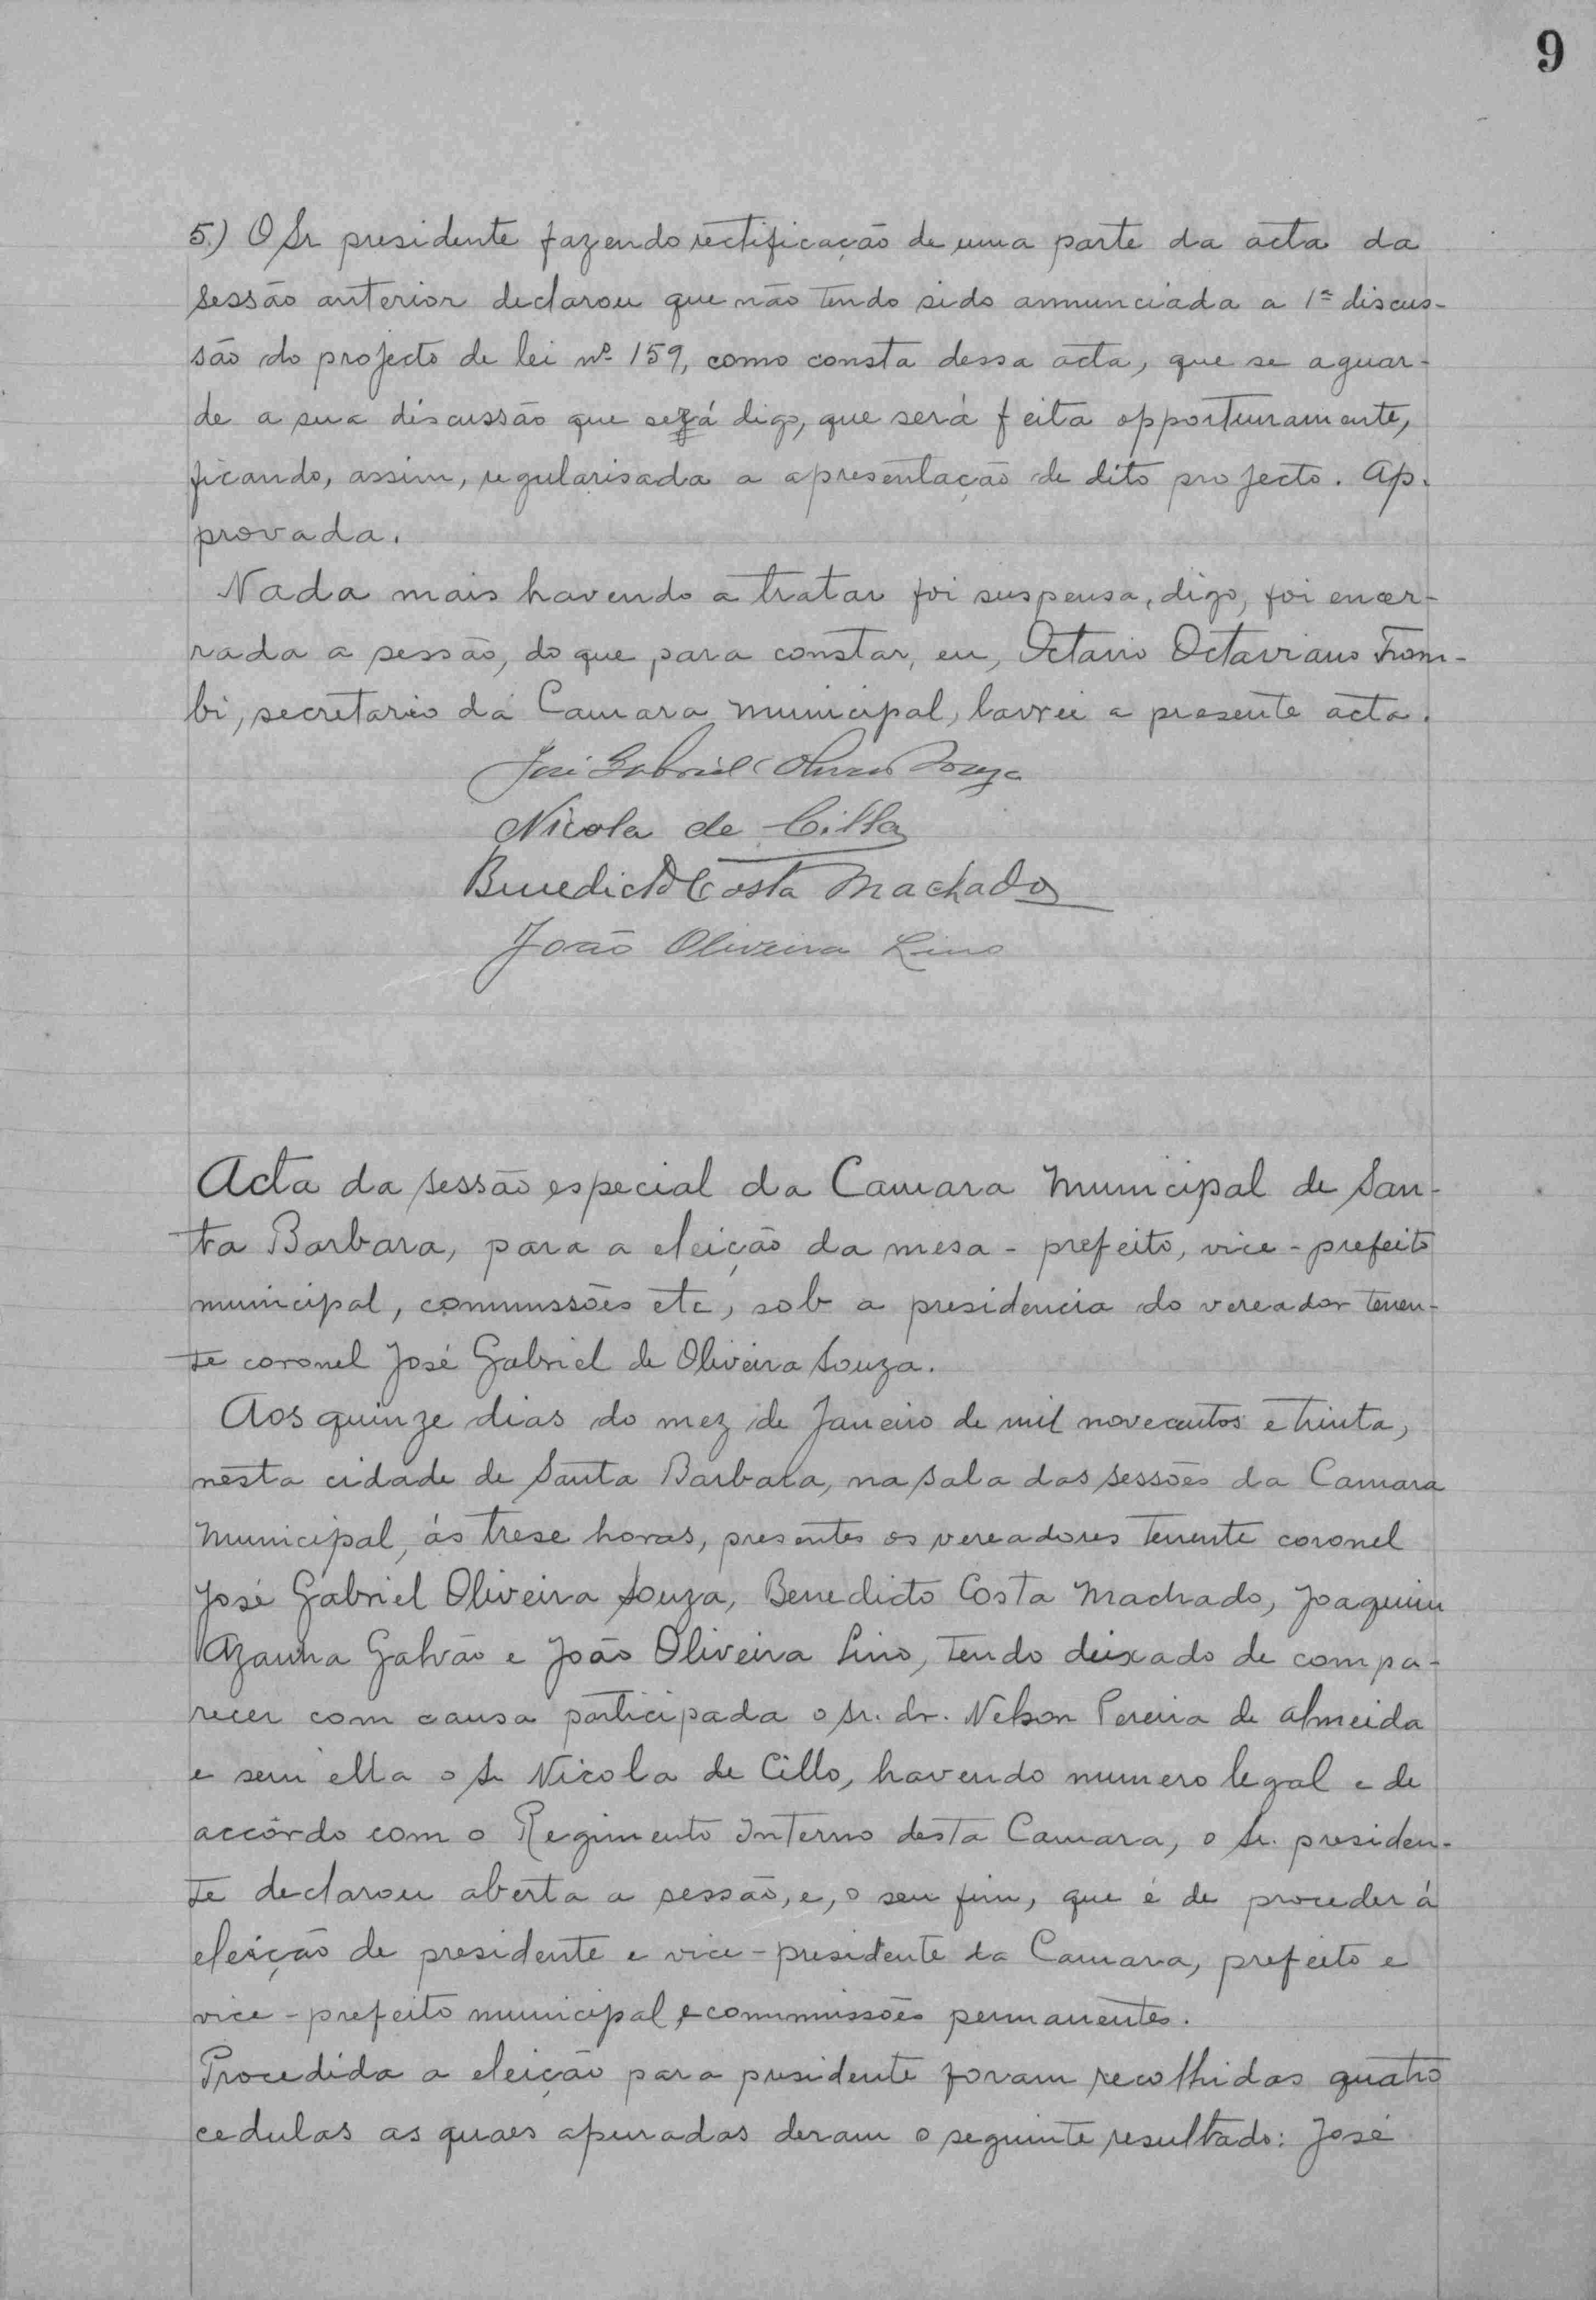 9
5.) O Sr presidente fazendo rectificação de uma parte da acta da
sessão anterior declarou que não tendo sido annunciada a 1ª discus-
são do projecto de lei nº 159, como consta dessa acta, que se aguar-
de a sua discussão que será digo, que será feita opportunamente,
ficando, assim, regularisada a apresentação de dito projecto. Ap-
provada.
Nada mais havendo a tratar foi suspensa, digo, foi encer-
rada a sessão, do que para constar, eu, Octavio Octaviano Trom-
bi, secretario da Camara Municipal, lavrei a presente acta.
José Gabriel Oliveira Souza
Nicola de Cillo
Benedicto Costa Machado
João Oliveira Lino
Acta da sessão especial da Camara Municipal de San-
ta Barbara, para a eleição da mesa - prefeito, vice-prefeito
municipal, commissões etc, sob a presidencia do vereador tenen-
te coronel José Gabriel de Oliveira Souza.
Aos quinze dias do mez de Janeiro de mil novecentos e trinta,
nesta cidade de Santa Barbara, na sala das sessões da Camara
Municipal, ás trese horas, presentes os vereadores Tenente coronel
José Gabriel Oliveira Souza, Benedicto Costa Machado, Joaquim
Azanha Galvão e João Oliveira Lino, tendo deixado de compa-
recer com causa participada o sr. dr. Nelson Pereira de Almeida
e sem ella o Sr Nicola de Cillo, havendo numero legal e de
accôrdo com o Regimento Interno desta Camara, o Sr. presiden-
te declarou aberta a sessão, e, o seu fim, que é de proceder á
eleição de presidente e vice-presidente da Camara, prefeito e
vice-prefeito municipal e commissões permanentes.
Procedida a eleição para presidente foram recolhidas quatro
cedulas as quaes apuradas deram o seguinte resultado: José